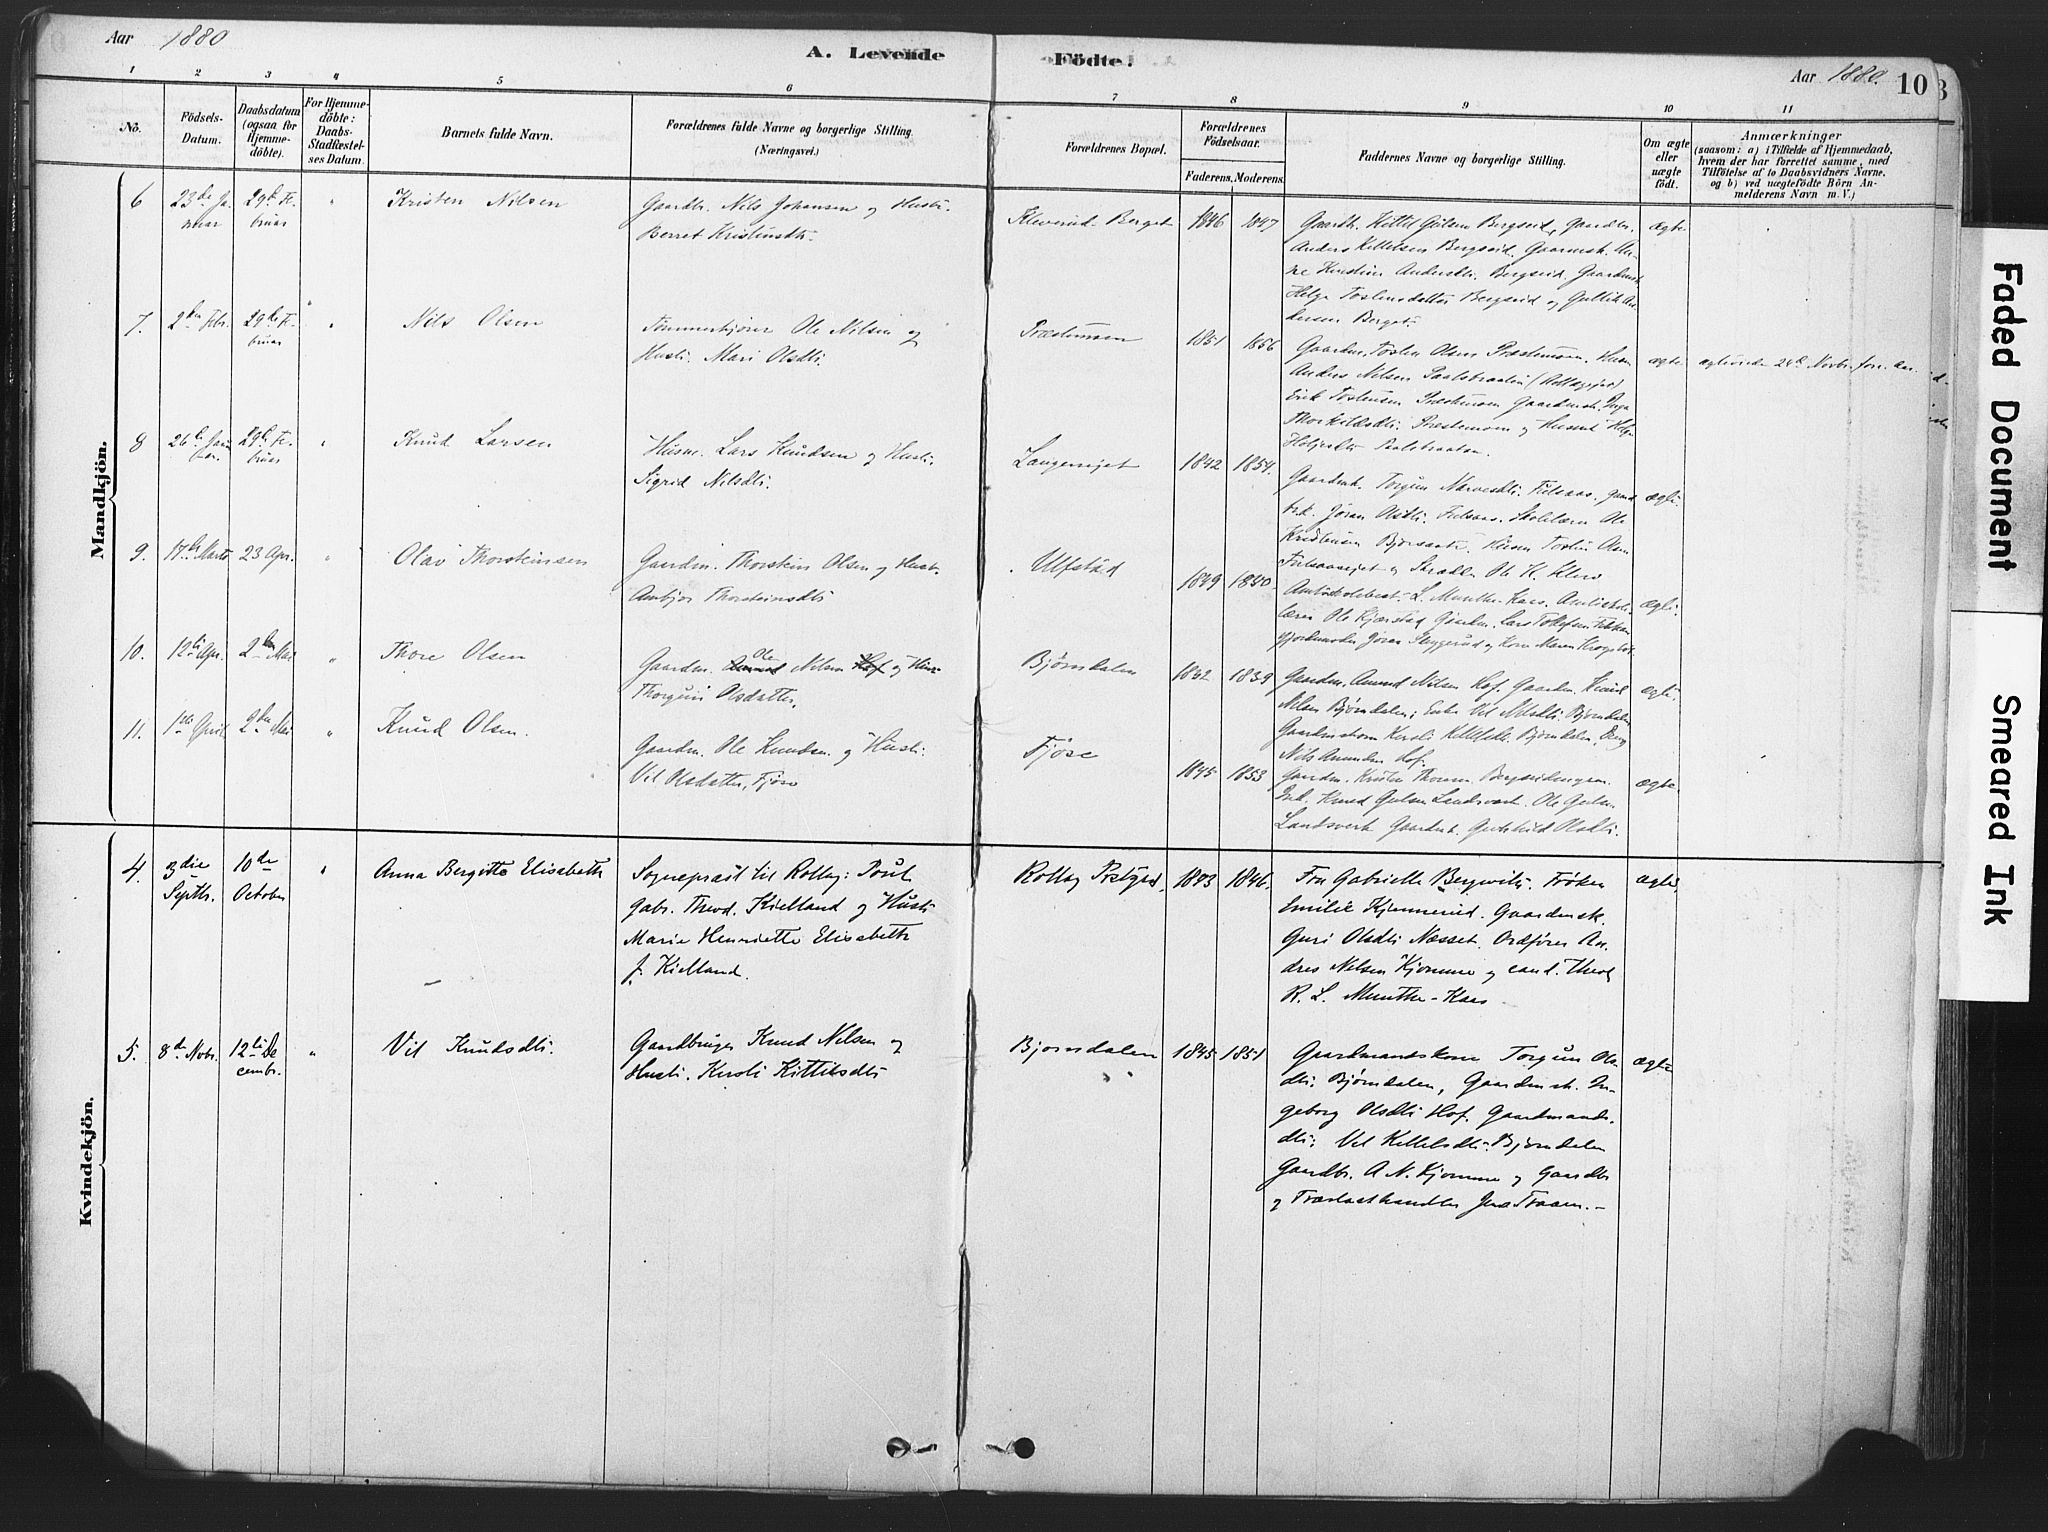 Aar 1880
A. Levende Födte.
Aar 1880.
10
1 2 3 4 5 6 7 8 9 10 11
No.
Födsels-
Datum.
Daabsdatum
(ogsaa for
Hjemme-
döbte).
For Hjemme-
döbte:
Daabs-
Stadfæstel-
ses Datum.
Barnets fulde Navn.
Forældrenes fulde Navne og borgerlige Stilling.
(Næringsvei.)
Forældrenes Bopæl.
Forældrenes
Födselsaar.
Faderens. Moderens.
Faddernes Navne og borgerlige Stilling.
Om ægte
eller
uægte
födt.
Anmærkninger
(saasom: a) i Tilfælde af Hjemmedaab,
hvem der har forrettet samme, med
Tilföielse af to Daabsvidners Navne.
og b) ved uægtefödte Börn An-
melderens Navn m. V.)
Mandkjön.
6
23de Ja-
nuar
29de Fe-
bruar
"
Kristen Nilsen
Gaardbr. Nils Johansen og Hustr.
Berret Kristensdtr.
Kleverud-Berget
1846
1847
Gaardbr. Kittel Gulsen Bergseid, Gaardbr.
Anders Kittelsen Bergseid, Gaardmsk. An-
ne Kerstine Andersdtr. Bergseid, Gaardmsk
Helge Tostensdatter Bergseid og Gullik An-
dersen Berget.
ægte
7.
2den Febr.
29de Fe-
bruar
"
Nils Olsen
Tømmerkjører Ole Nilsen og
Hustr. Mari Olsdtr.
Præstemoen
1851
1856
Gaardm. Tosten Olsen Præstemoen, Husm.
Anders Nilsen Paalsbraaten
Erik Tostensen Præstemoen Gaardmsk. Inga
Thorkildsdtr. Præstemoen og Husmk Helga
Paalsbraaten.
ægte
ægteviede 24de Novbr. forr. Aar.
8
26de Janu-
ar.
29de Fe-
bruar
"
Knud Larsen
Husm. Lars Knudsen og Hustr.
Sigrid Nilsdtr.
Langerejet
1842
1854.
Gaardmk. Torgun Narvesdtr. Fulsaas, Gaard-
brk. Jøran Olsdtr. Fulsaas, Skolelærer Ole
Kristensen Husm Tosten Olsen
Fulsaasejet og Ole K.
ægte
9.
17de Marts
23 Apr.
"
Olav Thorsteinsen
Gaardm. Thorstein Olsen og Hustr.
Ambjør Thorsteinsdtr
Ulfstad
1849
1840
Amtsskolebest. L. Munthe-Kaas, Amtsskole-
lærer Ole Kjærstad Gaardm. Lars Tollefsen
Gjordemoder Jøran Stuggerud og Kone Maren
ægte
10.
12te Apr.
2den Mai
"
Thore Olsen
Gaardm. Ole Nilsen Hof og Hustr.
Thorgun Olsdatter.
Bjørndalen
1832
1839
Gaardm. Amund Nilsen Hof, Gaardm. Knud
Nilsen Bjørndalen, Enke Vil Nilsdtr. Bjørndalen
Gaardmskone Kersti Kittilsdtr. Bjørndalen, Ung
Nils Amundsen Hof.
ægte
11.
1ste April
2den Mai
"
Knud Olsen.
Gaardm. Ole Knudsen og Hustr.
Vil Olsdatter, Fjøse
Fjøse
1845
1853
Gaardm. Kristen Thorsen Bergseid
Knud Gulsen Landsverk, Ole Gulsen
Landsverk Gaardmk. Gunhild Olsdtr.
ægte.
Kvindekjön.
4.
3die
Septbr.
10de
October
"
Anna Bergitte Elisabeth
Sognepræst til Rollag: Poul
Gabr. Theod. Kielland og Hustr
Marie Henriette Elisabeth
f. Kielland.
Rollag Prstgrd.
1843
1846.
Fru Gabrielle Bergwitz, Frøken
Emilie Kjennerud, Gaardmsk.
Guri Olsdtr Næsset, Ordfører An-
dres Nilsen Kjomme og cand. theol
R. L. Munthe-Kaas
ægte
5.
8de Novbr.
12te De-
cembr.
"
Vil Knudsdtr.
Gaardbruger Knud Nilsen og
Hustr. Kersti Kittilsdtr
Bjørndalen
1845
1851
Gaardmandskone Torgun Ols-
dtr. Bjørndalen, Gaardmsk. In-
geborg Olsdtr Hof, Gaardmands-
dtr. Vil Kittelsdtr. Bjørndalen
Gaardbr. A. N. Kjomme og Gaardbr
og Trælasthandler Jens Traaen.-
ægte
Faded Document
Smeared Ink